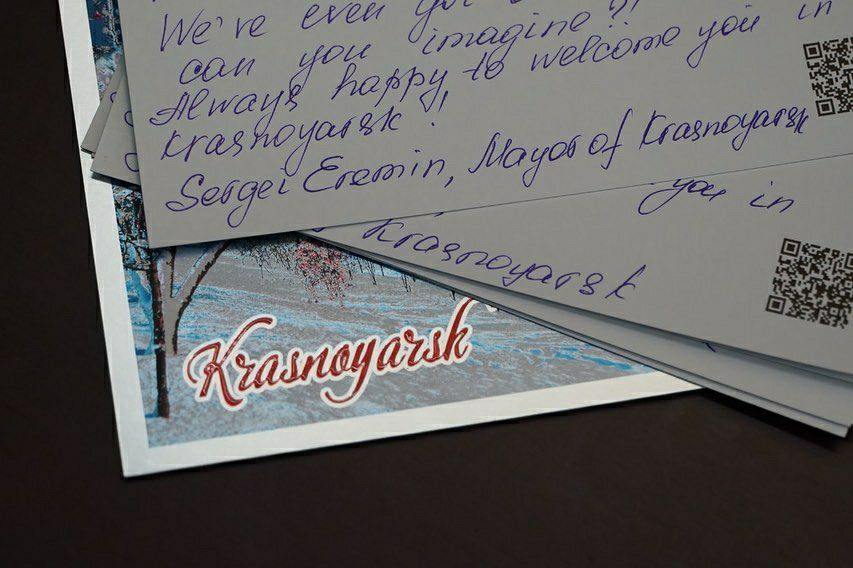 We've even
can you imagine?!
Always happy to welcome you in
Krasnoyarsk!
Sergei Eremin, Mayor of Krasnoyarsk
you in
Krasnoyarsk
Krasnoyarsk